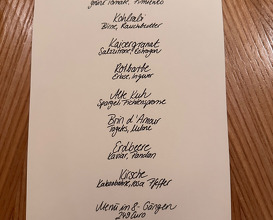 grüne Tomate, Pimientos
Kohlrabi
Birne, Rauchbutter
Kaisergranat
Salzzitrone, Estragon
Rotbarbe
Erbse, Ingwer
Alte Kuh
Spargel, Fichtensprosse
Brin d'Amour
Tagetes, Melone
Erdbeere
Kaviar, Pandan
Kirsche
Kakaobohne, Rosa Pfeffer
Menü in 8 Gängen
249 Euro